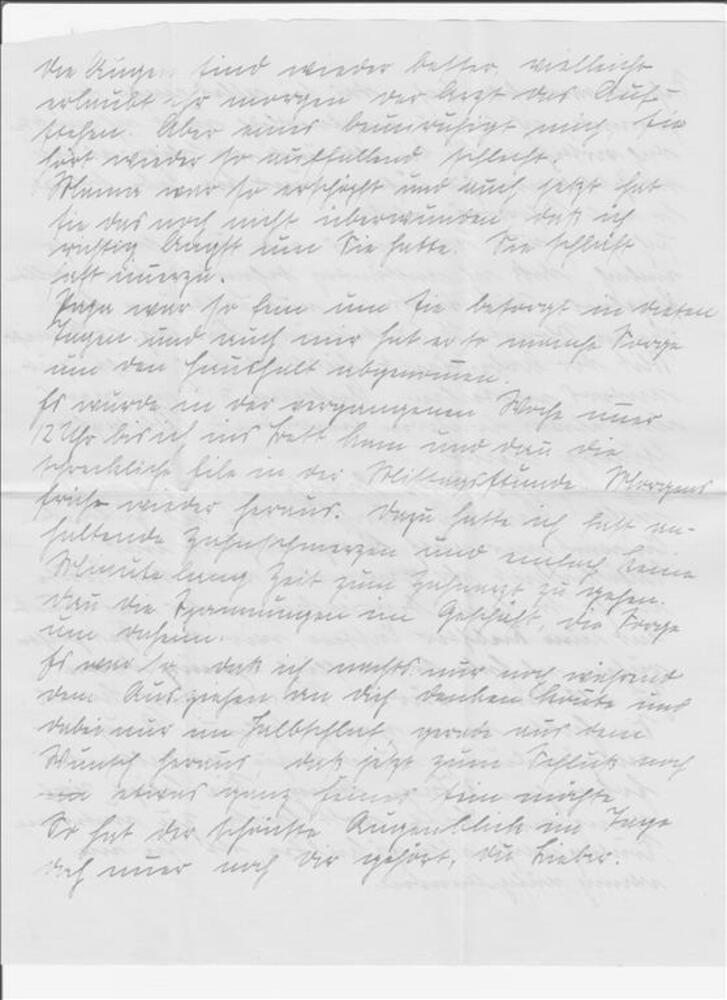 Die Augen sind wieder besser, vielleicht
erlaubt ihr morgen der Arzt das Auf-
stehen. Aber eines beunruhigt mich, sie
hört wieder so auffallend schlecht.
Mama war so erschöpft und auch jetzt hat
sie das noch nicht überwunden, daß ich
richtig Angst um Sie hatte. Sie schläft
oft immerzu.
Papa war so fein um Sie besorgt in diesen
Tagen und auch mir hat er so manche Sorge
um den Haushalt abgenommen.
Es wurde in der vergangenen Woche immer
12 Uhr bis ich ins Bett kam und dann die
schreckliche Eile in der Mittagsstunde. Morgens
früh wieder heraus. Dazu hatte ich fast an-
haltende Zahnschmerzen und einfach keine
Minute lang Zeit zum Zahnarzt zu gehen.
Dann die Spannungen im Geschäft, die Sorge
um daheim.
Es war so, daß ich nachts nur noch während
dem Ausziehen an dich denken konnte und
dabei nur im Halbschlaf, gerade aus dem
Wunsch heraus, daß jetzt zum Schluß noch
etwas ganz feines sein möchte.
So hat der schönste Augenblick im Tage
doch immer noch dir gehört, du Lieber.